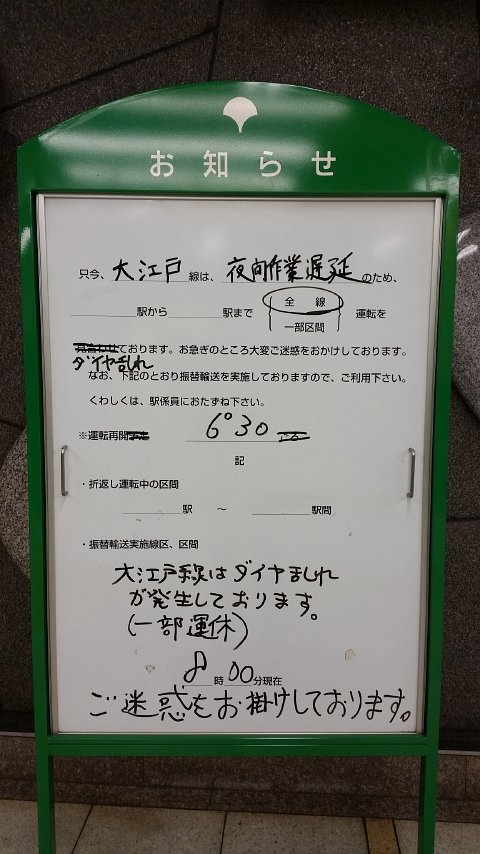 お知らせ
只今、大江戸線は、夜間作業遅延のため、
駅から 駅まで 全線 運転を
一部区間
見合わせております。お急ぎのところ大変ご迷惑をおかけしております。
ダイヤ乱れ
なお、下記のとおり振替輸送を実施しておりますので、ご利用下さい。
くわしくは、駅係員におたずね下さい。
※運転再開予定 6°30
記
・折返し運転中の区間
駅 ～ 駅間
・振替輸送実施線区、区間
大江戸線はダイヤ乱れ
が発生しております。
(一部運休)
8時00分現在
ご迷惑をお掛けしております。